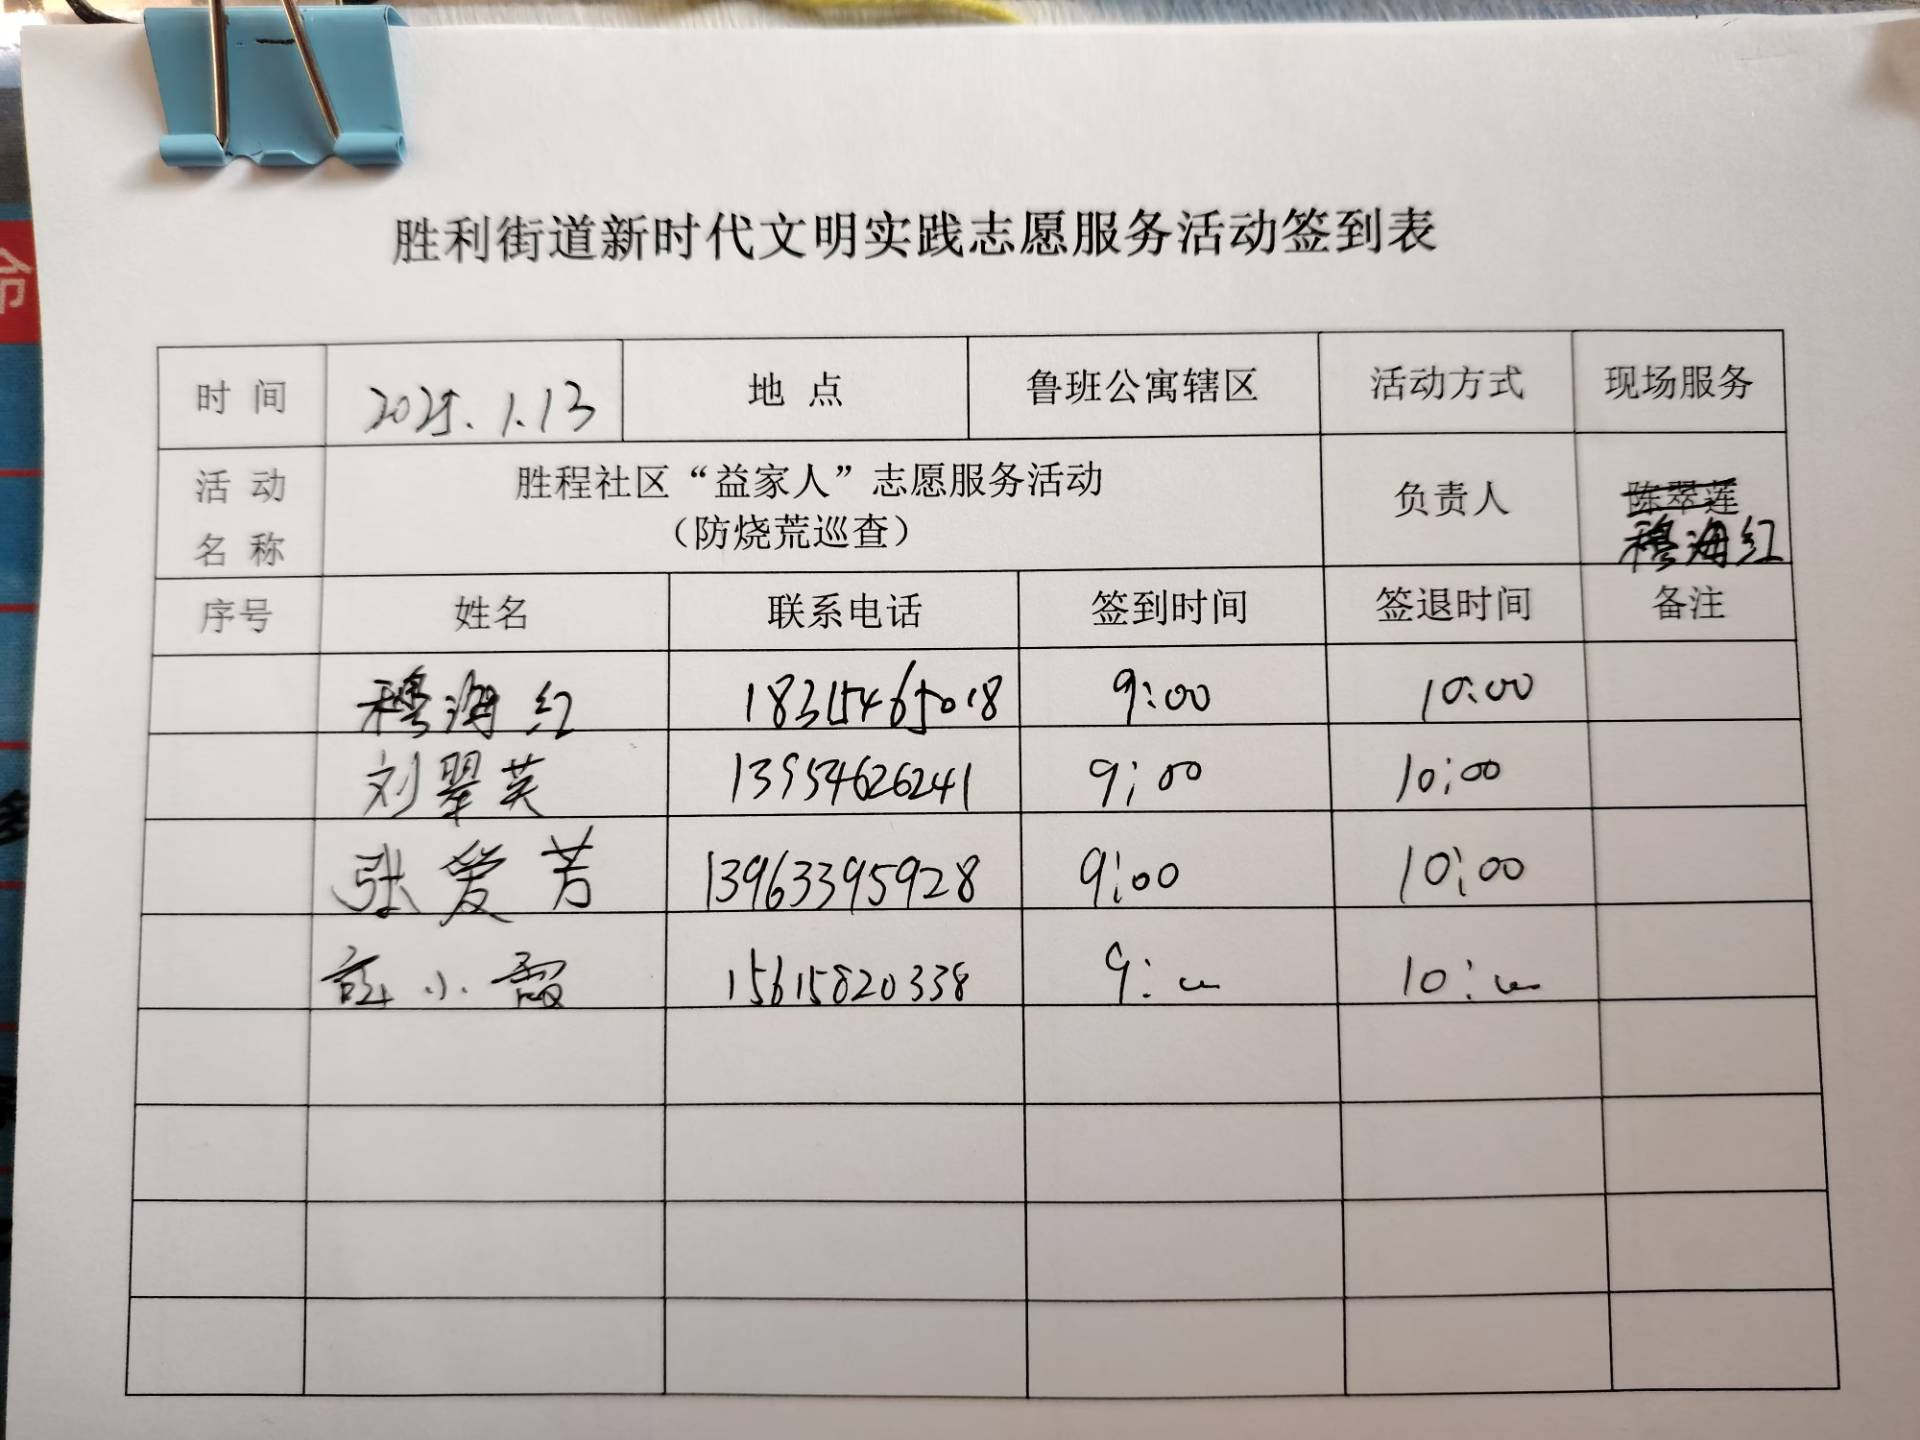 胜利街道新时代文明实践志愿服务活动签到表
时 间 2025.1.13 地 点 鲁班公寓辖区 活动方式 现场服务
活 动 名 称 胜程社区“益家人”志愿服务活动 (防烧荒巡查) 负责人 陈翠莲 穆海红
序号 姓名 联系电话 签到时间 签退时间 备注
穆海红 18315465018 9:00 10:00
刘翠英 13954626241 9:00 10:00
张爱芳 13963395928 9:00 10:00
小霞 15615820338 9:00 10:00
命